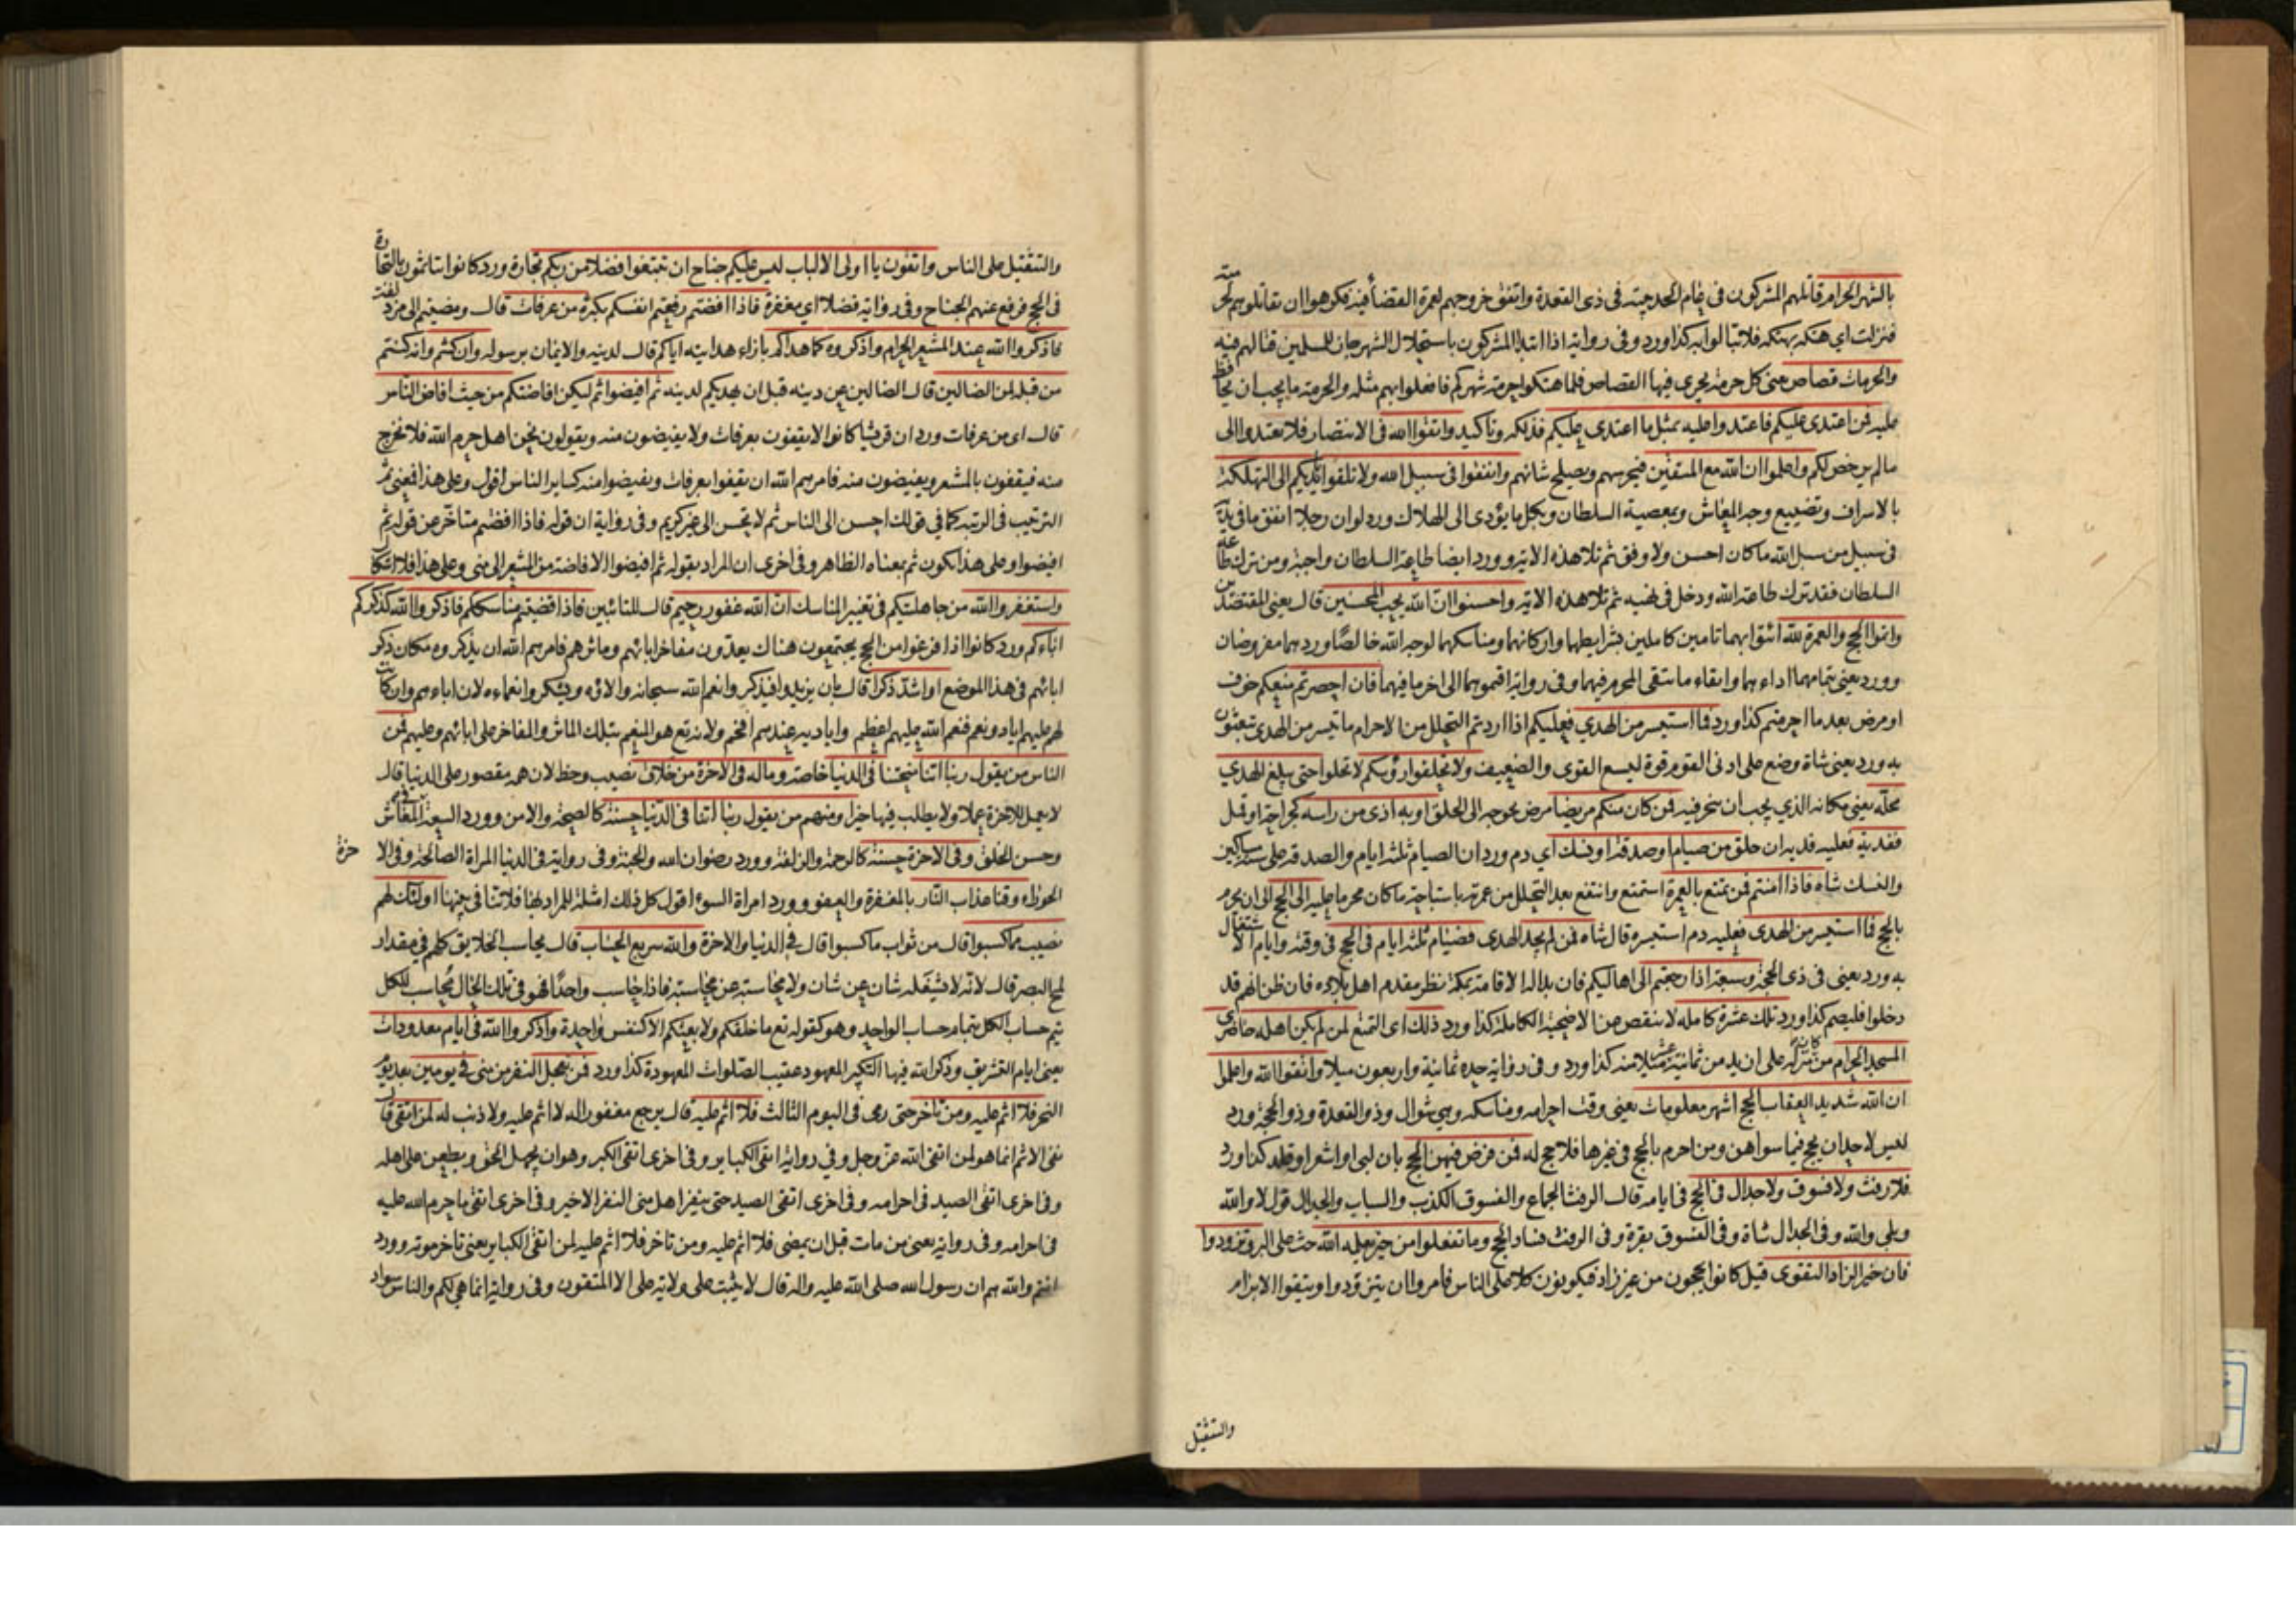 بالشهر الحرام قاتلهم المشركون في عام الحديبية في ذي القعدة واتفق خروجهم لعمرة القضاء فيه فكرهوا ان يقاتلوهم لحرمته
فنزلت اي هتكه بهتكه فلا تبالوا به كذا ورد وفي رواية اذا ابتدا المشركون باستحلال الشهر جاز للمسلمين قتالهم فيه
والحرمات قصاص يعني كل حرمة يجري فيها القصاص فلما هتكوا حرمة شهركم فافعلوا بهم مثله والحرمة ما يجب ان يحافظ
عليه فمن اعتدى عليكم فاعتدوا عليه بمثل ما اعتدى عليكم فذلكة وتاكيد واتقوا الله في الانتصار فلا تعتدوا الى
ما لم يرخص لكم واعلموا ان الله مع المتقين فيحرسهم ويصلح شانهم وانفقوا في سبيل الله ولا تلقوا بايديكم الى التهلكة
بالاسراف وتضييع وجه المعاش وبمعصية السلطان وبكل ما يؤدى الى الهلاك ورد لو ان رجلا انفق ما في يديه
في سبيل من سبل الله ما كان احسن ولا وفق ثم تلا هذه الاية وورد ايضا طاعة السلطان واجبة ومن ترك طاعة
السلطان فقد ترك طاعة الله ودخل في نهيه ثم تلا هذه الاية واحسنوا ان الله يحب المحسنين قال يعني المقتصدين
واتموا الحج والعمرة لله ائتوا بهما تامين كاملين بشرايطهما واركانهما ومناسكهما لوجه الله خالصا ورد هما مفروضان
وورد يعني بتمامهما اداءهما واتقاء ما يتقى المحرم فيهما وفي رواية اقيموهما الى اخر ما فيهما فان احصرتم منعكم خوف
او مرض بعد ما احرمتم كذا ورد فما استيسر من الهدي فعليكم اذا اردتم التحلل من الاحرام ما تيسر من الهدى تبعثون
به ورد يعني شاة وضع على ادنى القوم قوة ليسع القوى والضعيف ولا تحلقوا رؤسكم لا تحلوا حتى يبلغ الهدي
محله يعني مكانه الذي يجب ان ينحر فيه فمن كان منكم مريضا مرض يحوجه الى الحلق او به اذى من راسه كجراحة او قمل
ففدية فعليه فدية ان حلق من صيام او صدقة او نسك اي دم ورد ان الصيام ثلثة ايام والصدقة على ستة مساكين
والنسك شاة فاذا امنتم فمن تمتع بالعمرة استمتع وانتفع بعد التحلل من عمرته باستباحة ما كان محرما عليه الى الحج الى ان يحرم
بالحج فما استيسر من الهدى فعليه دم استيسره قال شاة فمن لم يجد الهدى فصيام ثلثة ايام في الحج في وقته وايام الاشتغال
به ورد يعني في ذي الحجة وسبعة اذا رجعتم الى اهاليكم فان بدا له الاقامة بمكة نظر مقدم اهل بلاده فان ظن انهم قد
دخلوا فليصم كذا ورد تلك عشرة كاملة لا ينقص من الاضحية الكاملة كذا ورد ذلك اى التمتع لمن لم يكن اهله حاضرى
المسجد الحرام من كان منزله على ازيد من ثمانية عشر ميلا منه كذا ورد وفي رواية حده ثمانية واربعون ميلا واتقوا الله واعلموا
ان الله شديد العقاب الحج اشهر معلومات يعني وقت احرامه ومناسكه وهي شوال وذو القعدة وذو الحجة ورد
ليس لاحد ان يحج فيما سواهن ومن احرم بالحج في غيرها فلا حج له فمن فرض فيهن الحج بان لبى او اشعر او قلد كذا ورد
فلا رفث ولا فسوق ولا جدال في الحج في ايامه قال الرفث الجماع والفسوق الكذب والسباب والجدال قول لا والله
وبلى والله وفي الجدال شاة وفي الفسوق بقرة وفي الرفث فساد الحج وما تفعلوا من خير يعلمه الله حث على البر وتزودوا
فان خير الزاد التقوى قيل كانوا يحجون من غير زاد فيكونون كلا على الناس فامروا ان يتزودوا ويتقوا الابرام
والتثقيل
والتثقيل على الناس واتقون يا اولى الالباب ليس عليكم جناح ان تبتغوا فضلا من ربكم تجارة ورد كانوا يتاثمون بالتجارة
في الحج فرفع عنهم الجناح وفي رواية فضلا اي مغفرة فاذا افضتم دفعتم انفسكم بكثرة من عرفات قال ومضيتم الى مزدلفة
فاذكروا الله عند المشعر الحرام واذكروه كما هداكم بازاء هدايته اياكم قال لدينه والايمان برسوله وان كنتم وانه كنتم
من قبله لمن الضالين قال الضالين عن دينه قبل ان يهديكم لدينه ثم افيضوا ثم ليكن افاضتكم من حيث افاض الناس
قال اى من عرفات ورد ان قريشا كانوا لا يقفون بعرفات ولا يفيضون منه ويقولون نحن اهل حرم الله فلا نخرج
منه فيقفون بالمشعر ويفيضون منه فامرهم الله ان يقفوا بعرفات ويفيضوا منه كساير الناس اقول وعلى هذا فمعنى ثم
الترتيب في الرتبة كما في قولك احسن الى الناس ثم لا تحسن الى غير كريم وفي رواية ان قوله فاذا افضتم متاخر عن قوله ثم
افيضوا وعلى هذا يكون ثم بمعناه الظاهر وفي اخرى ان المراد بقوله ثم افيضوا الافاضة من المشعر الى منى وعلى هذا فلا اشكال
واستغفروا الله من جاهليتكم في تغيير المناسك ان الله غفور رحيم قال للتائبين فاذا قضيتم مناسككم فاذكروا الله كذكركم
اباءكم ورد كانوا اذا فرغوا من الحج يجتمعون هناك يعدون مفاخر ابائهم وماثرهم فامرهم الله ان يذكروه مكان ذكر
ابائهم في هذا الموضع او اشد ذكرا قال بان يزيدوا فيذكروا نعم الله سبحانه والائه ويشكروا نعماءه لان اباءهم وان كانت
لهم عليهم اياد ونعم فنعم الله عليهم اعظم واياديه عندهم افخم ولانه تع هو المنعم بتلك الماثر والمفاخر على ابائهم وعليهم فمن
الناس من يقول ربنا اتنا منحتنا في الدنيا خاصة وماله في الاخرة من خلاق نصيب وحظ لان همه مقصور على الدنيا قال
لا يعمل للاخرة عملا ولا يطلب فيها خيرا ومنهم من يقول ربنا اتنا في الدنيا حسنة كالصحة والامن وورد السعة في المعاش
وحسن الخلق وفي الاخرة حسنة كالرحمة والزلفة وورد رضوان الله والجنة وفي رواية في الدنيا المراة الصالحة وفي الاخرة
الحوراء وقنا عذاب النار بالمغفرة والعفو وورد امراة السوء اقول كل ذلك امثلة للمراد بها فلا تنافي بينها اولئك لهم
نصيب مما كسبوا قال من ثواب ما كسبوا قال في الدنيا والاخرة والله سريع الحساب قال يحاسب الخلايق كلهم في مقدار
لمح البصر قال لانه لا يشغله شان عن شان ولا محاسبة عن محاسبة فاذا حاسب واحدا فهو في تلك الحال محاسب للكل
يتم حساب الكل بتمام حساب الواحد وهو كقوله تع ما خلقكم ولا بعثكم الا كنفس واحدة واذكروا الله في ايام معدودات
يعني ايام التشريق وذكر الله فيها التكبير المعهود عقيب الصلوات المعهودة كذا ورد فمن تعجل النفر من منى في يومين بعد يوم
النحر فلا اثم عليه ومن تاخر حتى رمى في اليوم الثالث فلا اثم عليه قال يرجع مغفورا له لا اثم عليه ولا ذنب له لمن اتقى قال
نفى الاثم انما هو لمن اتقى الله عز وجل وفي رواية اتقى الكباير وفي اخرى اتقى الكبر وهو ان يجهل الحق ويطعن على اهله
وفي اخرى اتقى الصيد في احرامه وفي اخرى اتقى الصيد حتى ينفر اهل منى النفر الاخير وفي اخرى اتقى ما حرم الله عليه
في احرامه وفي رواية يعني من مات قبل ان يمضى فلا اثم عليه ومن تاخر فلا اثم عليه لمن اتقى الكباير يعني تاخر موته وورد
انتم والله هم ان رسول الله صلى الله عليه واله قال لا يثبت على ولاية علي الا المتقون وفي رواية انما هي لكم والناس سواد